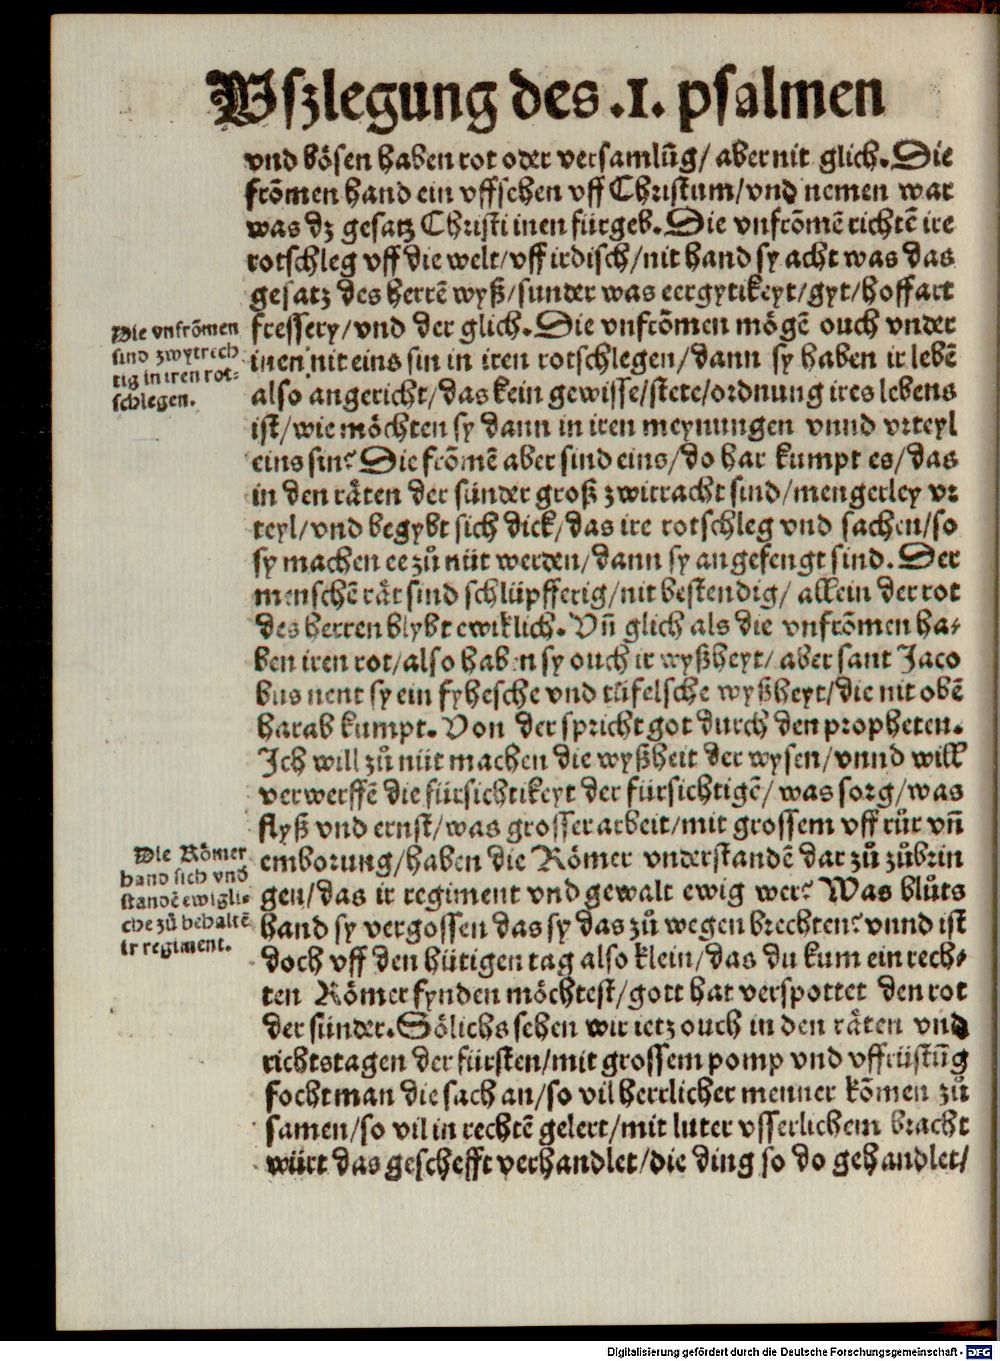 Vszlegung des .1. psalmen
vnd bösen haben rot oder versamlūg/ aber nit glich. Die
frōmen hand ein vffsehen vff Christum/vnd nemen war
was dz gesatz Christi inen fürgeb. Die vnfrōmē richtē ire
rotschleg vff die welt/vff irdisch/nit hand sy acht was das
gesatz des herrē wyß/sunder was eergytikeyt/gyt/hoffart
fressery/vnd der glich. Die vnfrōmen mögē ouch vnder
inen nit eins sin in iren rotschlegen/dann sy haben ir lebē
also angericht/das kein gewisse/stete/ordnung ires lebens
ist/wie möchten sy dann in iren meynungen vnnd vrteyl
eins sin? Die frōmē aber sind eins/do har kumpt es/das
in den räten der sünder groß zwitracht sind/mengerley vr
teyl/vnd begybt sich dick/das ire rotschleg vnd sachen/so
sy machen ee zů nüt werden/dann sy angefengt sind. Der
menschē rät sind schlüpfferig/nit bestendig/ allein der rot
des herren blybt ewiklich. Vn̄ glich als die vnfrōmen ha-
ben iren rot/also haben sy ouch ir wyßheyt/ aber sant Jaco
bus nent sy ein fyhesche vnd tüfelsche wyßheyt/die nit obē
harab kumpt. Von der spricht got durch den propheten.
Ich will zů nüt machen die wyßheit der wysen/vnnd will
verwerffē die fürsichtikeyt der fürsichtigē/ was sorg/was
flyß vnd ernst/was grosser arbeit/mit grossem vff růr vn̄
emborung/haben die Römer vnderstandē dar zů zůbrin
gen/das ir regiment vnd gewalt ewig wer? Was blůts
hand sy vergossen das sy das zů wegen brechten? vnnd ist
doch vff den hütigen tag also klein/das du kum ein rech-
ten Römer fynden möchtest/gott hat verspottet den rot
der sünder. Sölichs sehen wir ietz ouch in den räten vnd
richtstagen der fürsten/mit grossem pomp vnd vffrüstūg
focht man die sach an/so vil herrlicher menner kōmen zů
samen/so vil in rechtē gelert/mit luter vsserlichem bracht
würt das geschefft verhandlet/die ding so do gehandlet/
Die vnfrōmen
sind zwytrech
tig in iren rot-
schlegen.
Die Römer
hand sich vnd
standē ewigli-
che zů behaltē
ir regiment.
Digitalisierung gefördert durch die Deutsche Forschungsgemeinschaft - DFG